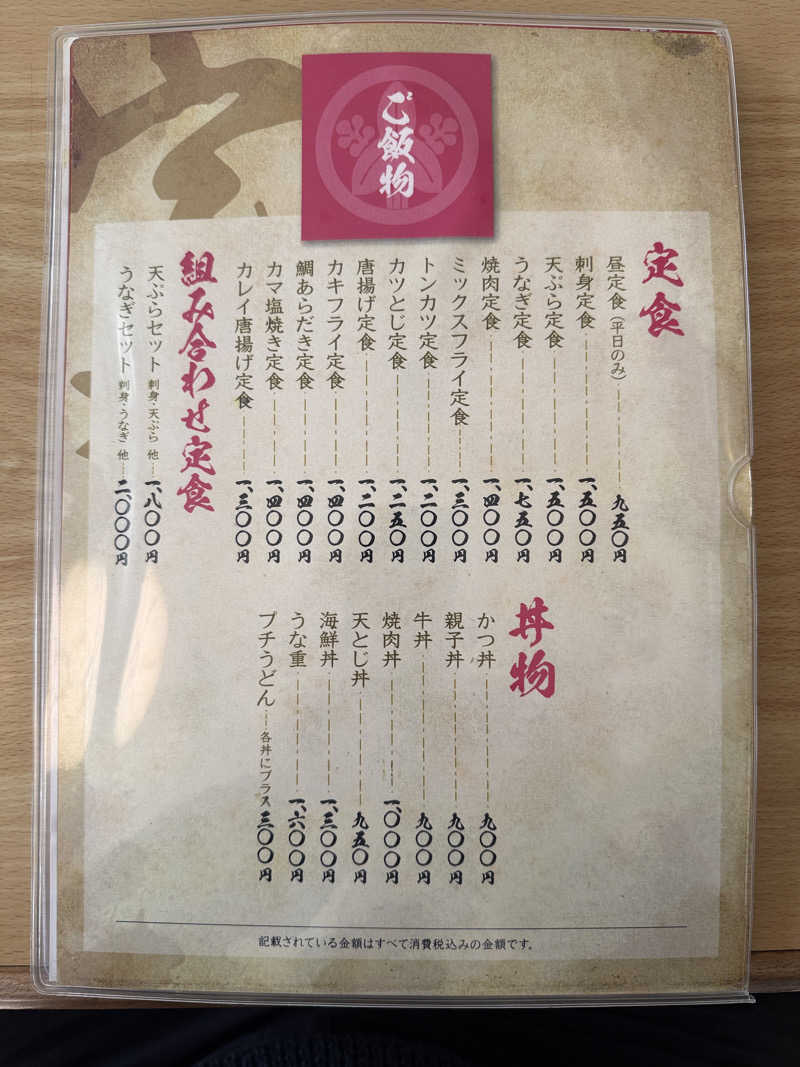 ご飯物
定食
昼定食(平日のみ) 九五〇円
刺身定食 一、五〇〇円
天ぷら定食 一、五〇〇円
うなぎ定食 一、七五〇円
焼肉定食 一、四〇〇円
ミックスフライ定食 一、三〇〇円
トンカツ定食 一、二〇〇円
カツとじ定食 一、二五〇円
唐揚げ定食 一、二〇〇円
カキフライ定食 一、四〇〇円
鯛あらだき定食 一、四〇〇円
カマ塩焼き定食 一、四〇〇円
カレイ唐揚げ定食 一、三〇〇円
組み合わせ定食
天ぷらセット 刺身・天ぷら 他 一、八〇〇円
うなぎセット 刺身・うなぎ 他 二、〇〇〇円
丼物
かつ丼 九〇〇円
親子丼 九〇〇円
牛丼 九〇〇円
焼肉丼 一、〇〇〇円
天とじ丼 九五〇円
海鮮丼 一、三〇〇円
うな重 一、六〇〇円
プチうどん 各丼にプラス 三〇〇円
記載されている金額はすべて消費税込みの金額です。